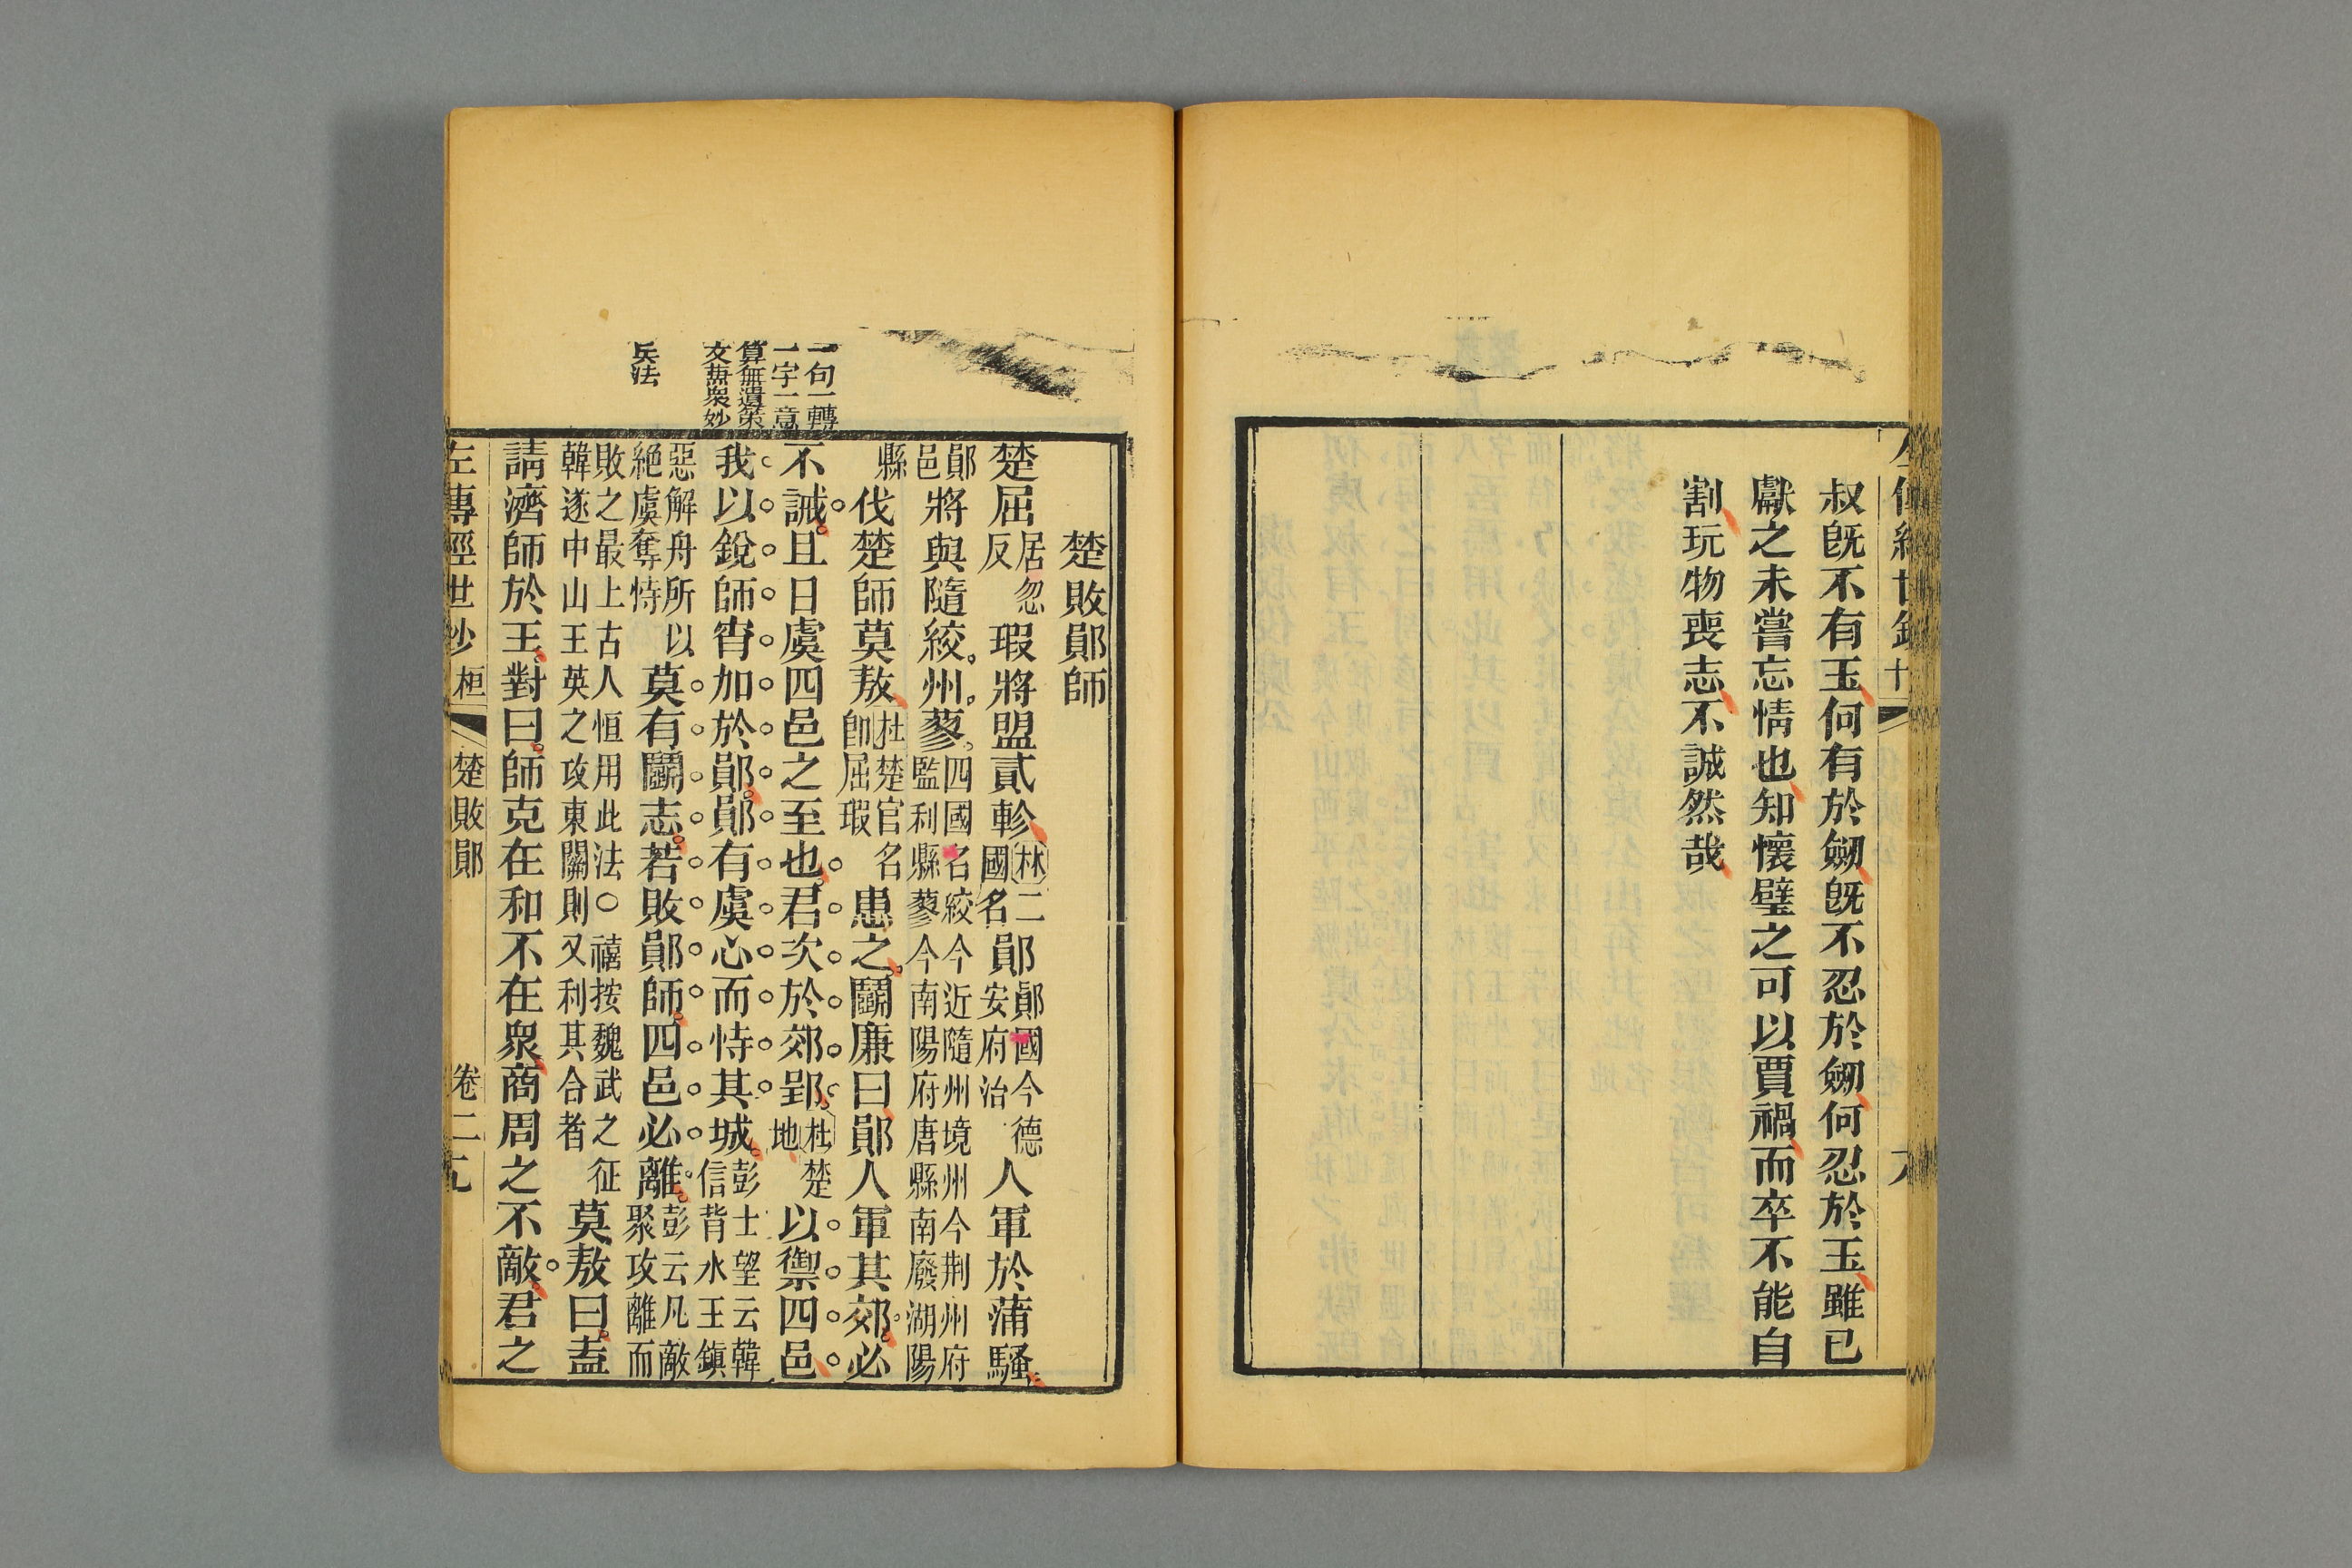 叔旣不有玉何有於劒旣不忍於劒何忍於玉雖已
獻之未嘗忘情也知懷璧之可以賈禍而卒不能自
割玩物喪志不誠然哉
一句一轉
一字一意
算無遺策
文兼衆妙
兵法
楚敗鄖師
楚屈居忽反瑕將盟貳軫林二國名鄖鄖國今德安府治人軍於蒲騷
鄖邑將與隨絞州蓼四國名絞今近隨州境州今荆州府監利縣蓼今南陽府唐縣南廢湖陽
縣伐楚師莫敖杜楚官名卽屈瑕患之鬭廉曰鄖人軍其郊必
不誡且日虞四邑之至也君次於郊郢杜楚地以禦四邑
我以銳師宵加於鄖鄖有虞心而恃其城彭士望云韓信背水王鎮
惡解舟所以絕虞奪恃莫有鬭志若敗鄖師四邑必離彭云凡敵聚攻離而
敗之最上古人恒用此法○禧按魏武之征韓遂中山王英之攻東關則又利其合者莫敖曰盍
請濟師於王對曰師克在和不在衆商周之不敵君之
左傳經世鈔 桓 楚敗鄖 卷二 九